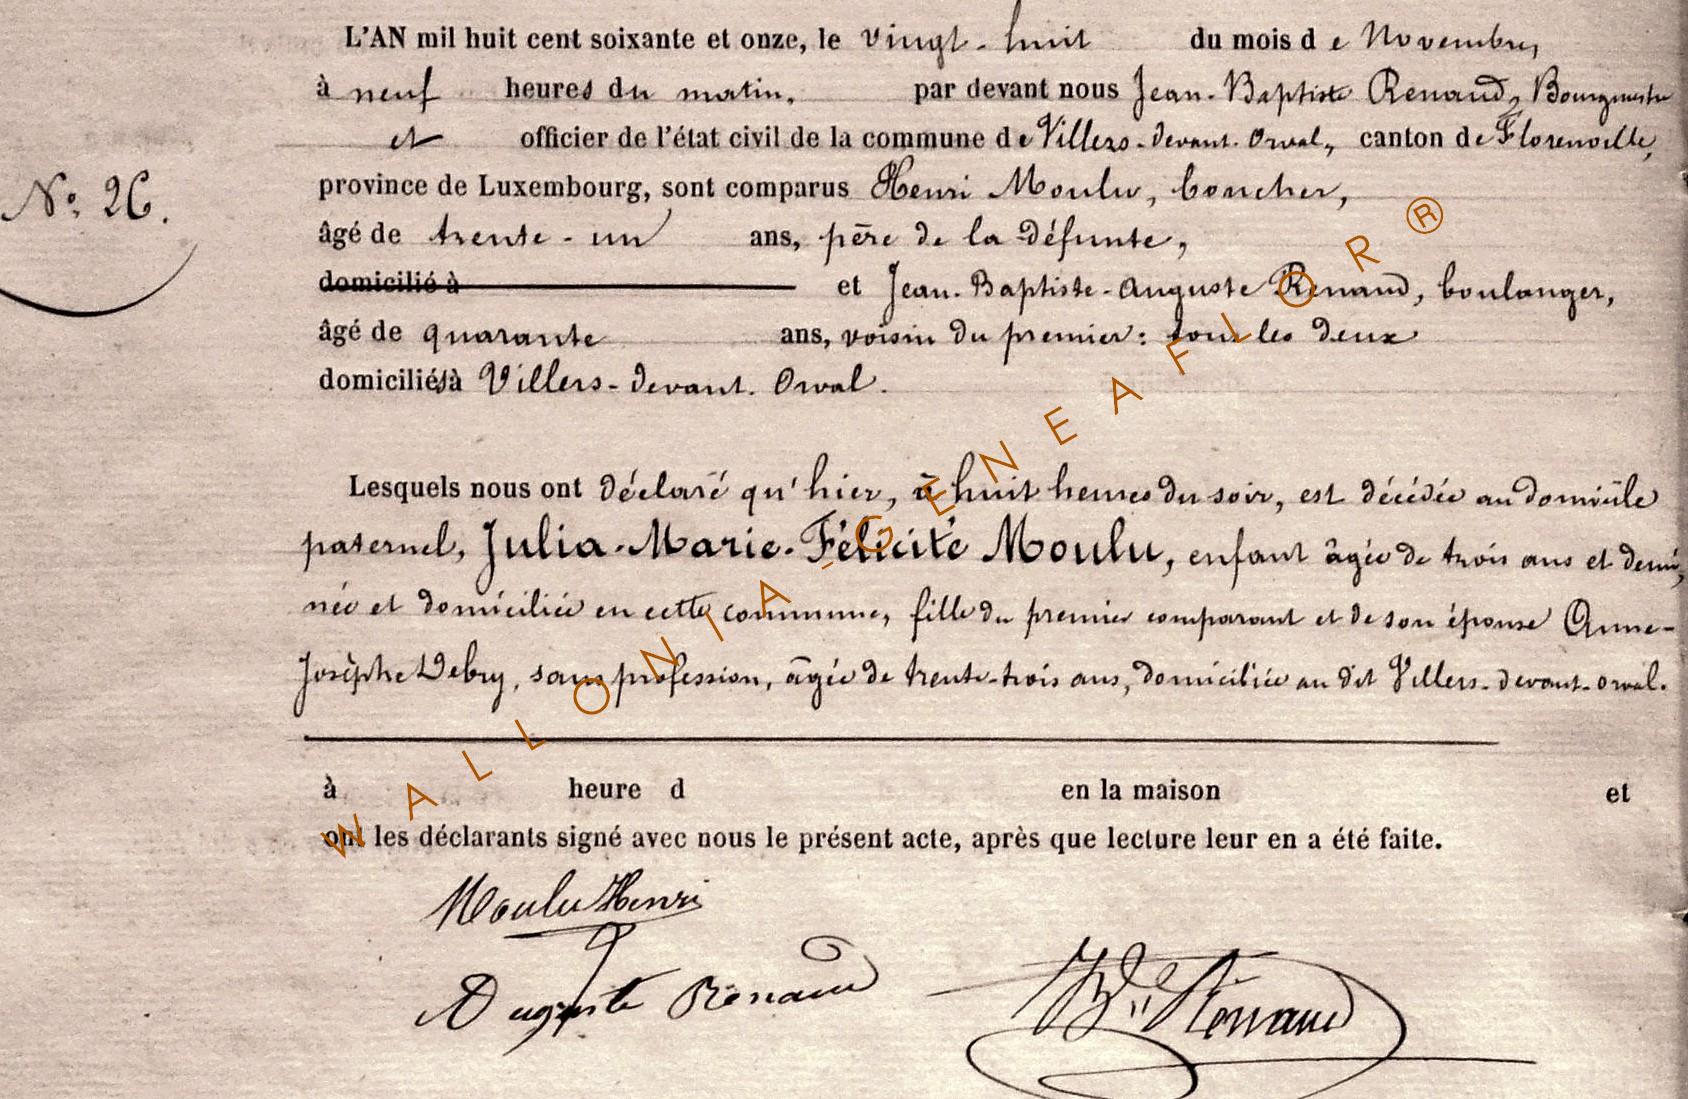 L'AN mil huit cent soixante et onze, le vingt-huit du mois de Novembre,
à neuf heures du matin, par devant nous Jean-Baptiste Renaud, Bourgmestre
et officier de l'état civil de la commune de Villers-devant-Orval, canton de Florenville,
N°. 26.
province de Luxembourg, sont comparus Henri Moulu, boucher,
âgé de trente-un ans, père de la défunte,
domicilié à et Jean-Baptiste-Auguste Renaud, boulanger,
âgé de quarante ans, voisin du premier: tous les deux
domiciliés à Villers-devant-Orval.
Lesquels nous ont déclaré qu'hier, à huit heures du soir, est décédée au domicile
paternel, Julia-Marie-Félicité Moulu, enfant âgée de trois ans et demi,
née et domiciliée en cette commune, fille du premier comparant et de son épouse Anne-
Josèphe Debry, sans profession, âgée de trente-trois ans, domiciliée au dit Villers-devant-orval.
à heure d en la maison et
ont les déclarants signé avec nous le présent acte, après que lecture leur en a été faite.
Moulu Henri
Auguste Renaud
Renaud
WALLONIA-GENEAFLOR®